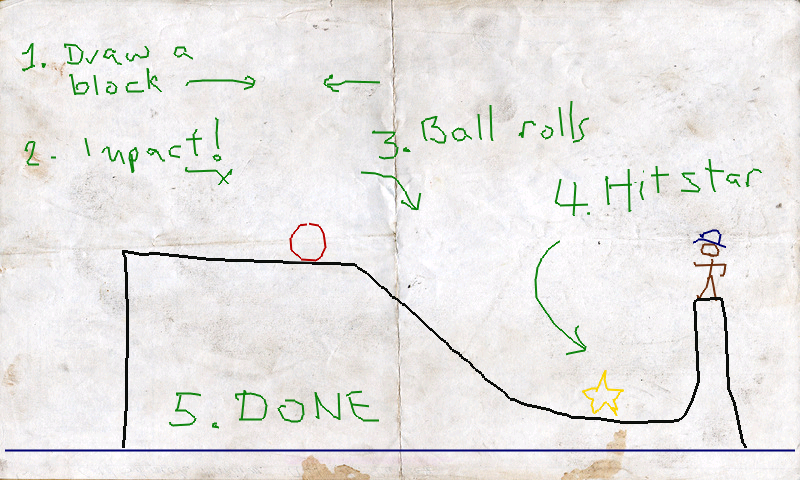 1. Draw a
block
2. Impact!
3. Ball rolls
4. Hit star
5. DONE